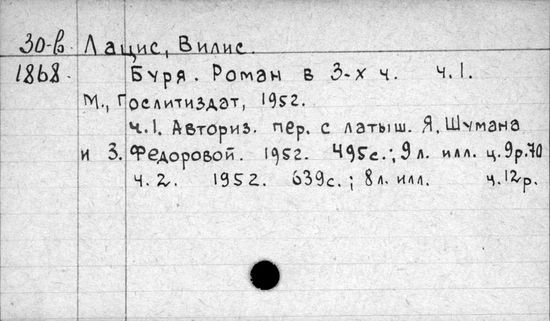 30-в Лацис, Вилис.
1868. Буря. Роман в 3-х ч. ч.1.
М., Гослитиздат, 1952.
ч.1. Авториз. пер. с латыш. Я. Шумана
и З. Федоровой. 1952. 495с.; 9л. илл. ц.9р.70
ч.2. 1952. 639с.; 8л. илл. ц.12р.